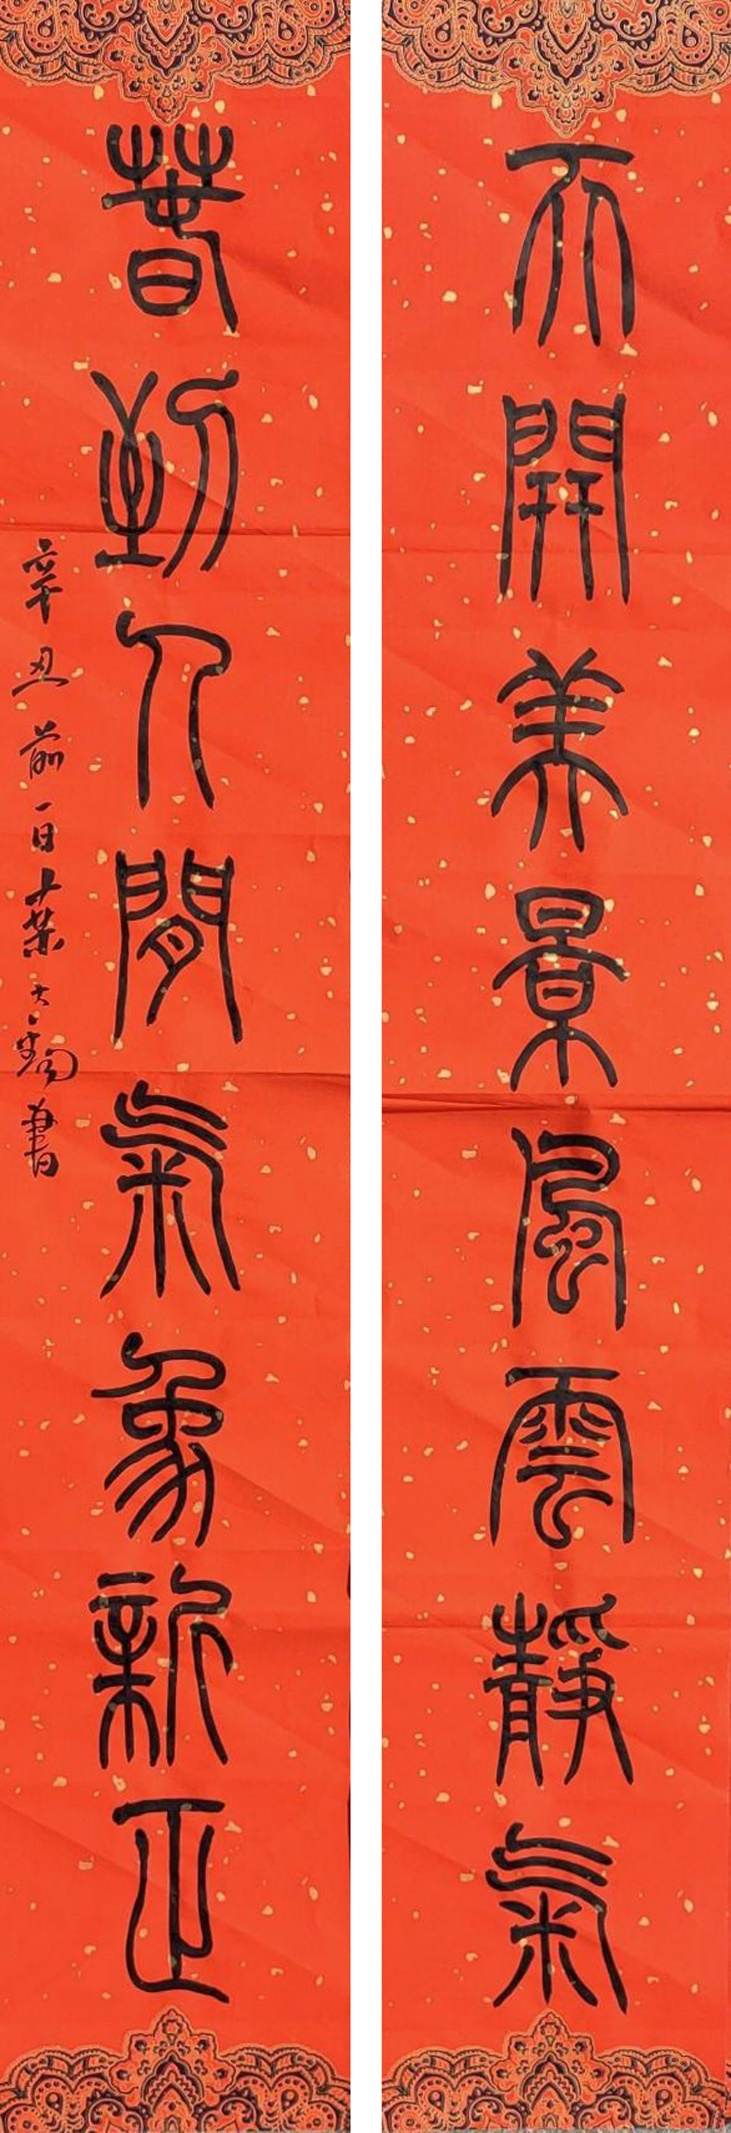 天開美景風雲靜氣
春到人間氣象新正
辛丑前一日葉大書